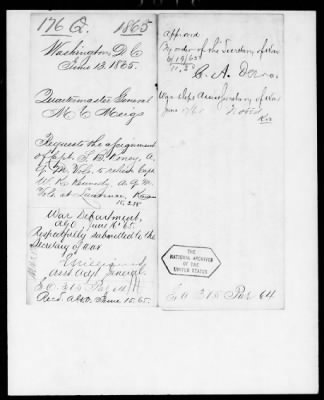 176 Q. 1865
Washington, D.C.
June 13. 1865.
Quartermaster General
M. C. Meigs
Requests the assignment
of Capt. L. B.
Q. M. Vols. to relieve Capt.
W. K. Kennedy A. Q. M.
Vols. at Lawrence, Kansas
War Department,
A.G.O. June 14" 65.
Respectfully submitted to the
Secretary of War
Asst Adjt General.
S.O. 315 Par 64
Recd. A.G.O. June 15. 65.
Approved
By order of the Secretary of War
C. A. Dana.
War Dept Asst Secretary of War
June 65
THE
NATIONAL ARCHIVES
OF THE
UNITED STATES
S.O. 315 Par 64